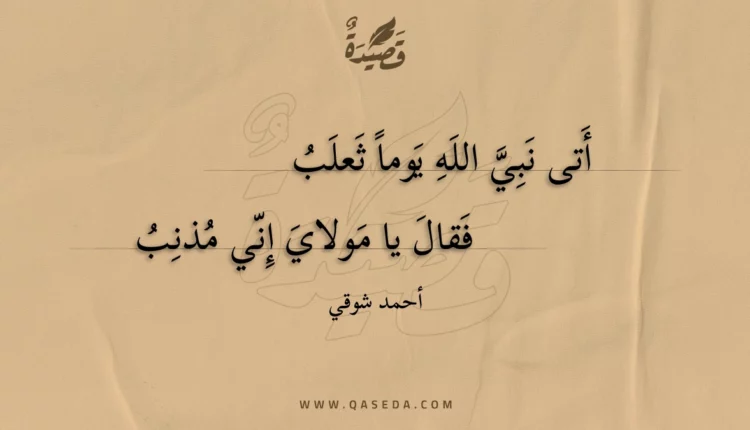 قَصِيدَةٌ
أَتى نَبِيَّ اللَهِ يَوماً ثَعلَبُ
فَقالَ يا مَولايَ إِنّي مُذنِبُ
أحمد شوقي
WWW.QASEDA.COM